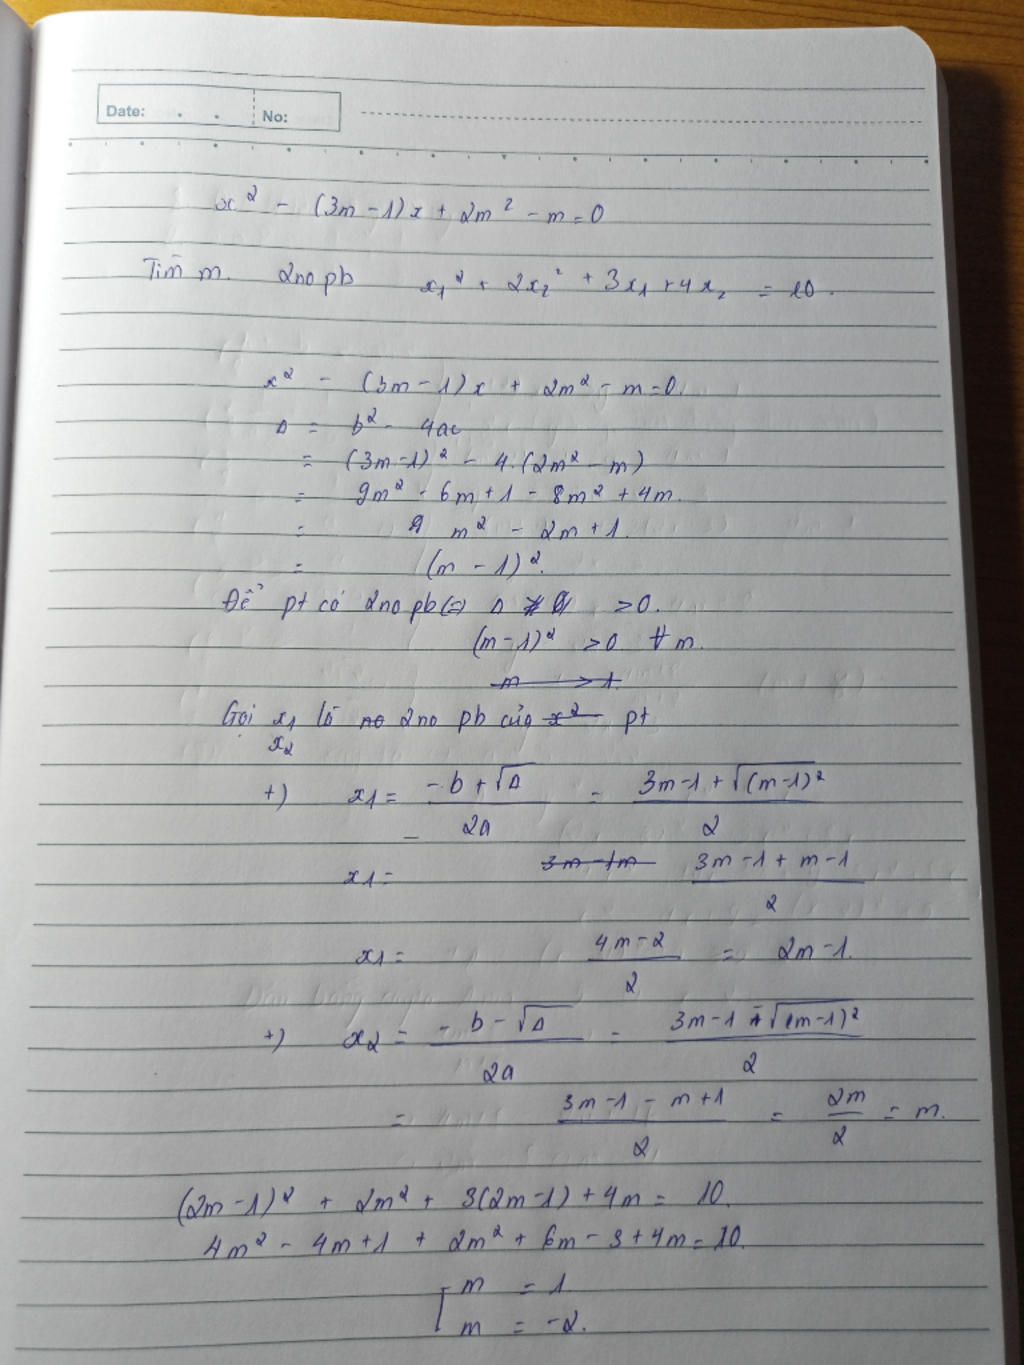 Date: . . No:
x² - (3m-1)x + 2m² - m = 0
Tìm m. 2no pb x₁² + 2x₂² + 3x₁ + 4x₂ = 10.
x² - (3m-1)x + 2m² - m = 0.
Δ = b² - 4ac
= (3m-1)² - 4.(2m² - m)
= 9m² - 6m + 1 - 8m² + 4m.
= m² - 2m + 1.
= (m - 1)².
Để pt có 2no pb (=) Δ > 0.
(m-1)² > 0 ∀ m.
m > 1.
Gọi x₁ là no 2no pb của x² pt
x₂
+) x₁ = (-b + √Δ)/2a = (3m-1 + √(m-1)²)/2
x₁ = 3m-1m (3m-1 + m-1)/2
x₁ = (4m-2)/2 = 2m-1.
+) x₂ = (-b - √Δ)/2a = (3m-1 - √(m-1)²)/2
= (3m-1 - m+1)/2 = 2m/2 = m.
(2m-1)² + 2m² + 3(2m-1) + 4m = 10.
4m² - 4m + 1 + 2m² + 6m - 3 + 4m = 10.
[ m = 1
m = -2.